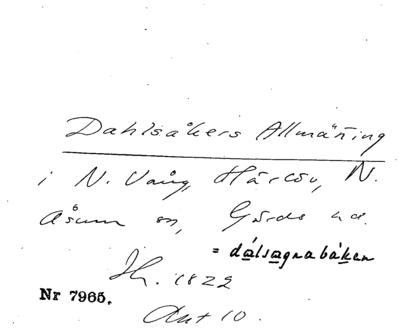 Dahlsåkers Allmäning
i N. Vång, Hårcov, N.
Åsum sn, Gärds hd.
= dålsagnabáken
Jh. 1822
Nr 7965.
Akt 10.